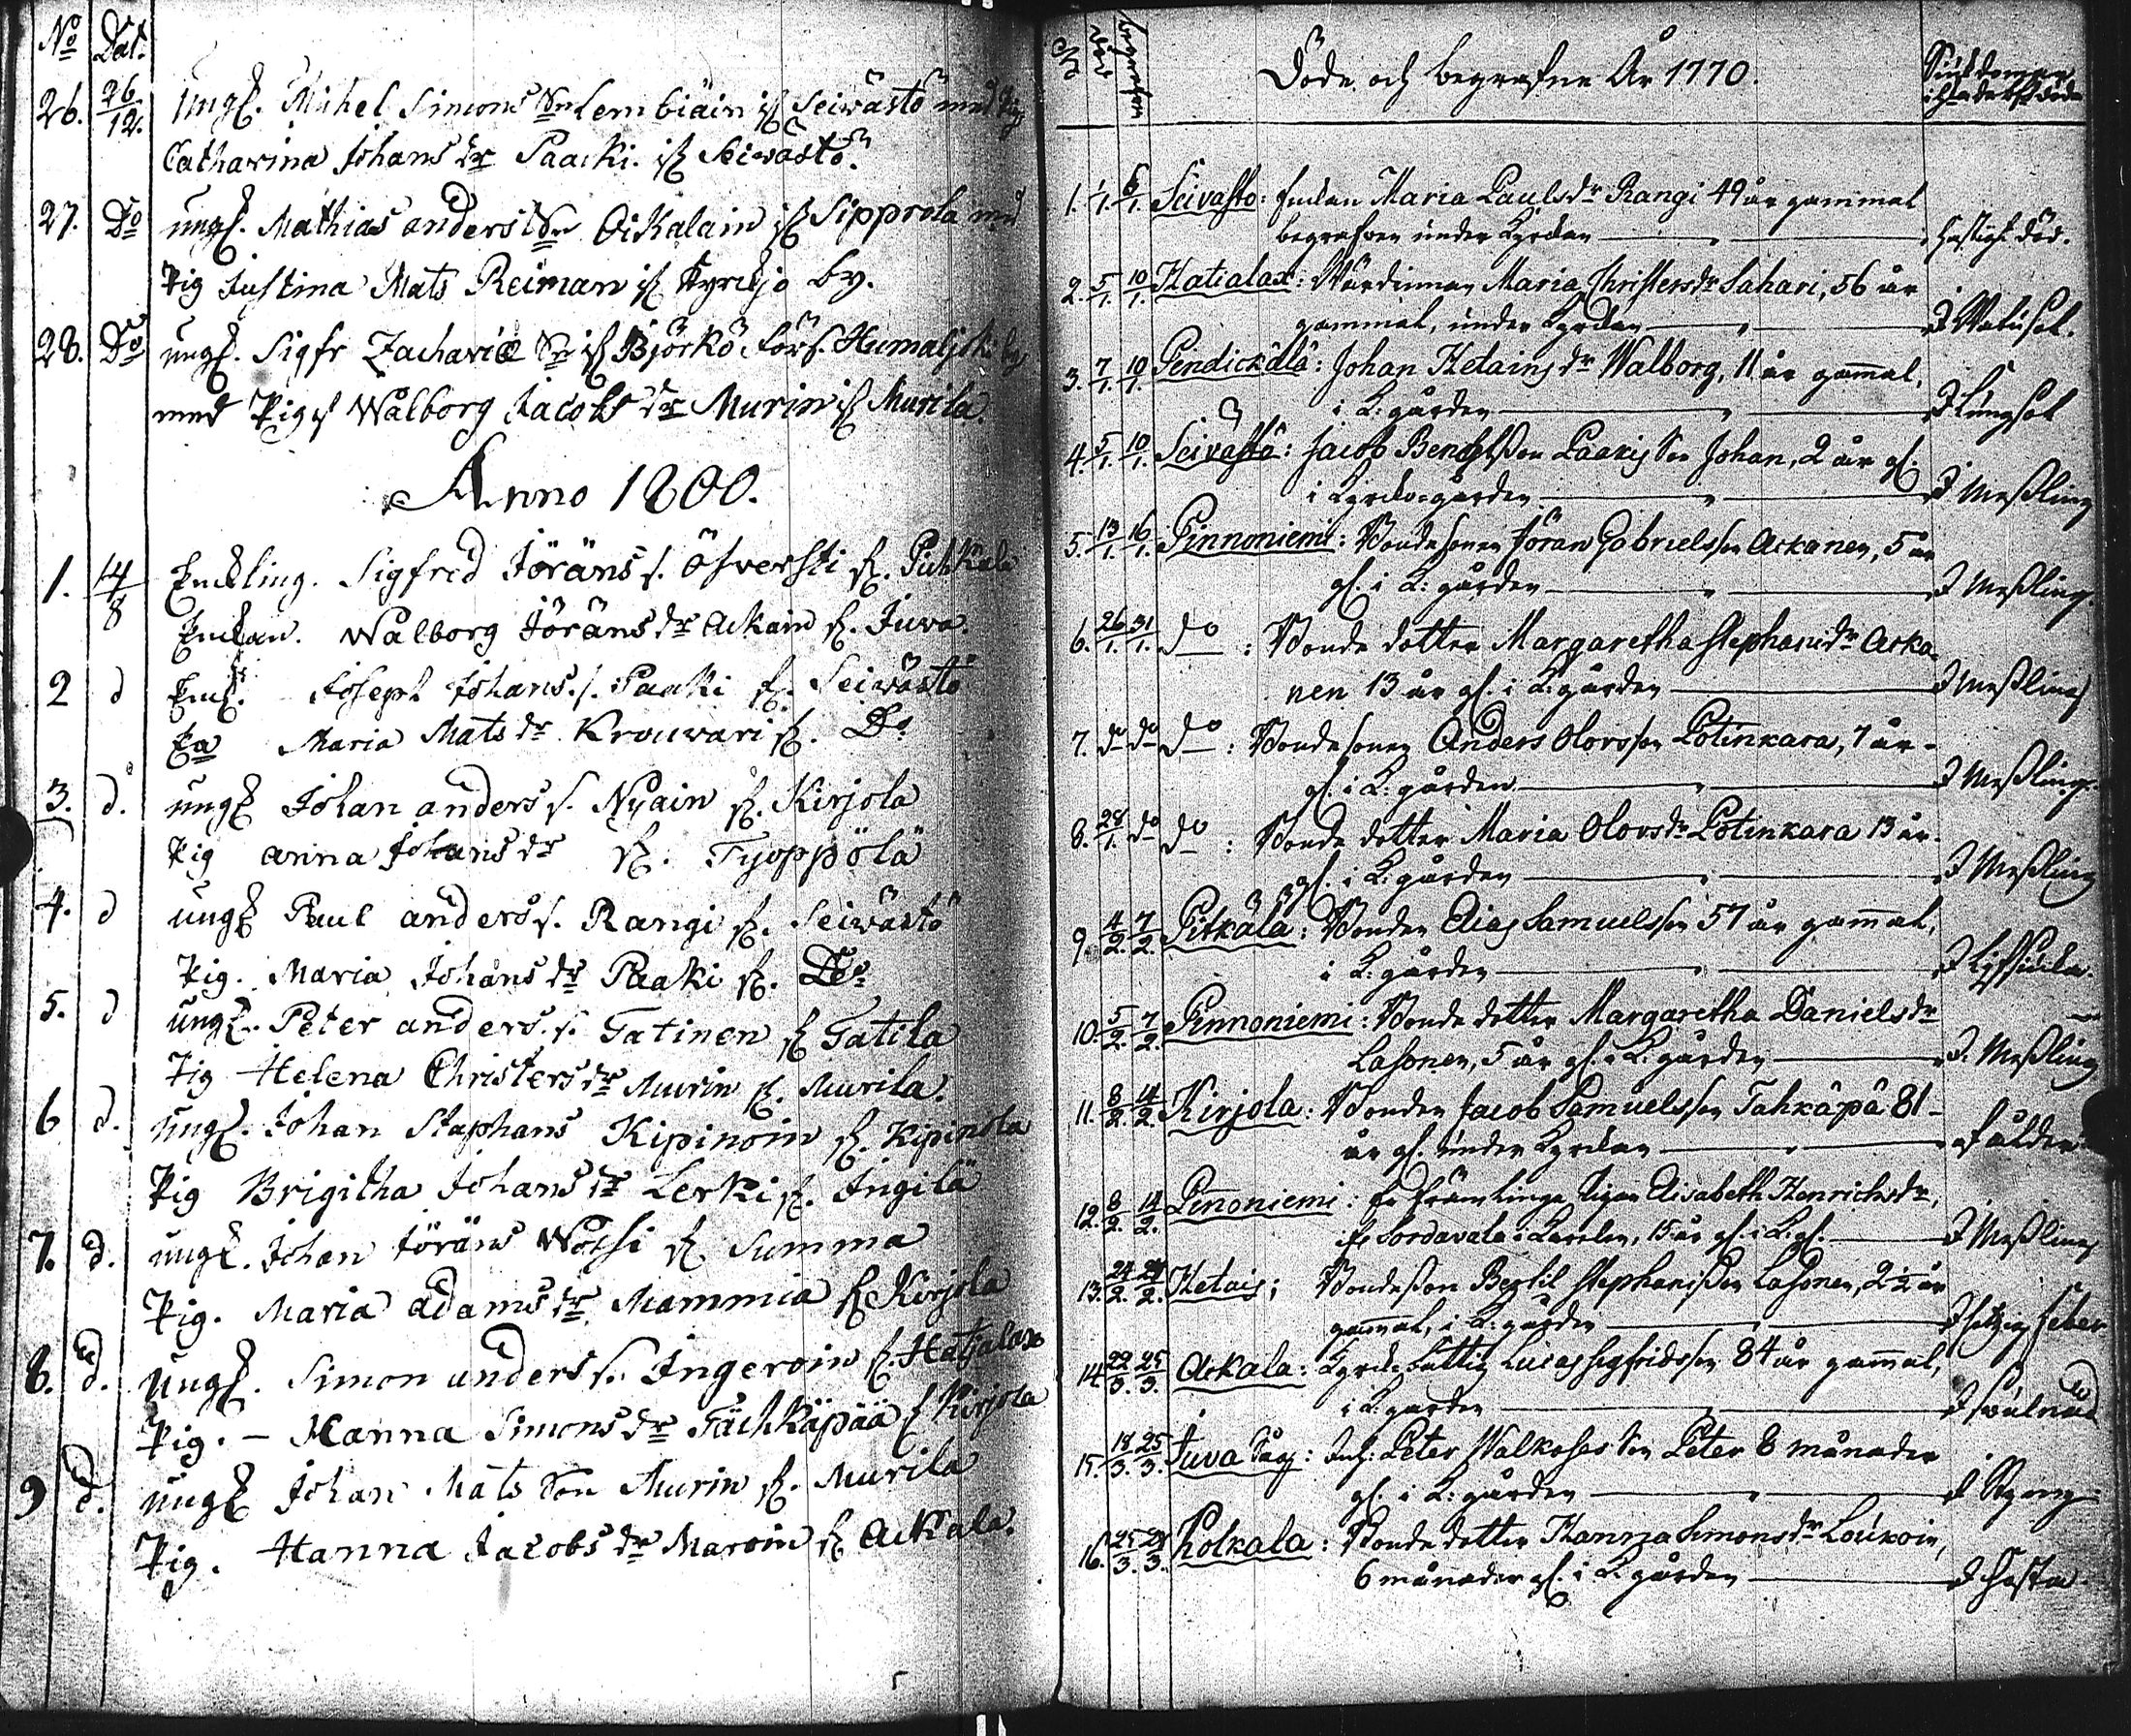 No Dat.
26. 26/12. ungk. Michel Simons Sn Lembiäin ifr. Seiwästö med Pig
Catharina Johans dr Paacki. ifr. Seiwästö.
27. Do ungk. Mathias anders Sn Oikalain ifr. Sipprola med
Pig Justina Mats Reiman ifr. Kyrckjo by.
28. Do ungk. Sigfr Zachariæ Sn ifr. Björkö Sorf. Humaljoki by
med Pig. Walborg Jacobs dr Murin ifr. Murila.
Anno 1800.
1. 14/8 Enckling. Sigfred Jöräns s. Öfversti fr. Pihkala
Enckan. Walborg Jöräns dr Ackain fr. Juva.
2 d Enckl. Joseph Johans. s. Paaki fr. Seiwästö
Ea Maria Mats dr Krouwari fr. Do
3. d. ungk Johan anders s. Nyäin fr. Kirjola
Pig anna Johans dr fr. Tyoppölä
4. d ungk Paul anders s. Rangi fr. Seiwästö
Pig. Maria Johans dr Paaki fr. Do
5. d ungk. Peter anders. s. Tatinen fr Tatila
Pig Helena Christers dr Murin fr. Murila.
6 d. ungk. Johan Staphans Kipinoin fr. Kipinola
Pig Brigitha Johans dr Lerki fr. Ingilä
7. d. ungk. Johan Jöräns Woisi fr Summa
Pig. Maria adams dr Mammia fr Kirjola
8. d. ungk. Simon anders s. Ingeroin fr. Hatjalax
Pig. - Hanna Simons dr Tächkäpää f Kirjola
9 d. ungk Johan Mats Son Murin fr. Murila
Pig. Hanna Jacobs dr Maroin fr Ackala.
No Död begrafven Döde och begrafne År 1770. Siukdomar
1. 1/1. 6/1. Seivasto: Enckan Maria Paulsdr Rangi 49 år gammal
begrafven under Kyrckan — " — Hastigh död.
2. 5/1. 10/1. Hatialax: Wärdinnan Maria Christersdr Sahari, 56 år
gammal, under Kyrckan — " — I Watusot.
3. 7/1. 10/1. Pendickälä: Johan Hetains dr Walborg, 11 år gam̄al,
i K: gården — " — I Lungsot
4. 5/1. 10/1. Seivästö: Jacob Bengtsson Paakis Son Johan, 2 år gl.
i Kyrckogården — " — I Meßling
5. 13/1. 16/1. Pinnoniemi: Bondesonen Jöran Gabrielsson Ackanen, 5 år
gl. i K: gården — " — I Meßling.
6. 26/1. 31/1. do : Bonde dotter Margaretha Stephansdr Acka-
nen 13 år gl. i K: gården — I Meßling
7. do do do : Bondesonen Anders Olovsson Potinkara, 7 år -
gl. i K: gården — " — I Meßling.
8. 28/1. do do : Bonde dotter Maria Olovsdr Potinkara 13 år.
gl. i K: gården — " — I Meßling
9. 4/2. 7/2. Pitkälä: Bonden Elias Samuelsson 57 år gam̄al,
i K: gården — " —
10. 5/2. 7/2. Pinnoniemi: Bonde dotter Margaretha Danielsdr
Lasonen, 5 år gl. i K: gården — I. Meßling
11. 8/2. 14/2. Kirjola: Bonden Jacob Samuelsson Tahkäpä 81 -
år gl. under Kyrckan — " — af ålder
12. 8/2. 14/2. Pinoniemi: En främlinge Pigan Elisabeth Henrichsdr,
ifr Sordavala i Karelen, 15 år gl. i K: g. — I Meßling
13. 24/2. 28/2. Hetais; Bondeson Bertil Stephansson Lasonen, 2 1/2 år
gam̄al, i K: gården — " — I hetzig feber
14 22/3. 25/3. Ackala: Kyrcko fattig Lucas Sigfridsson 84 år gam̄al,
i K: gården — " — I Swulnad
15. 18/3. 25/3. Juva Såg: Peter Walkoses Son Peter 8 månader
gl. i K: gården — " — I Styng
16. 25/3. 28/3. Kolkala: Bonde dotter Hanna Simonsdr Loukoin,
6 månader gl. i K: gården — I Hosta.